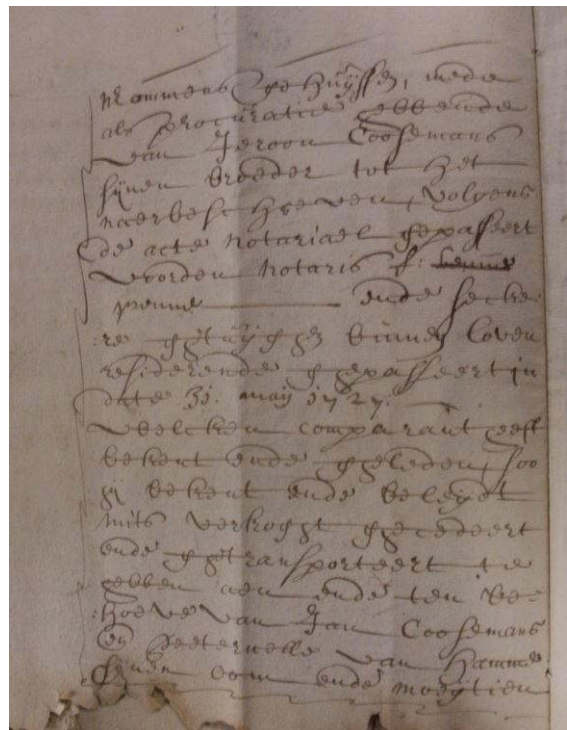 Mommens gehuÿssen, mede
als procuratie hebbende
van Jeroon Coosemans
sijnen broeder tot het
naerbeschreven, volgens
de acte notariael gepasseert
voorden notaris f:
penne ende seeke-
:re getuÿghen binnen loven
residerende gepasseert in
date 31. maij 1727.
welcken comparant heeft
bekent ende geleden, soo
hij bekent ende beleydt
mits verkoght gecedeert
ende getransporteert te
hebben aen ende ten be-
:hoeve van Jan Coosemans
en Peeternelle van Hamme
sijnen oom ende moeÿtien